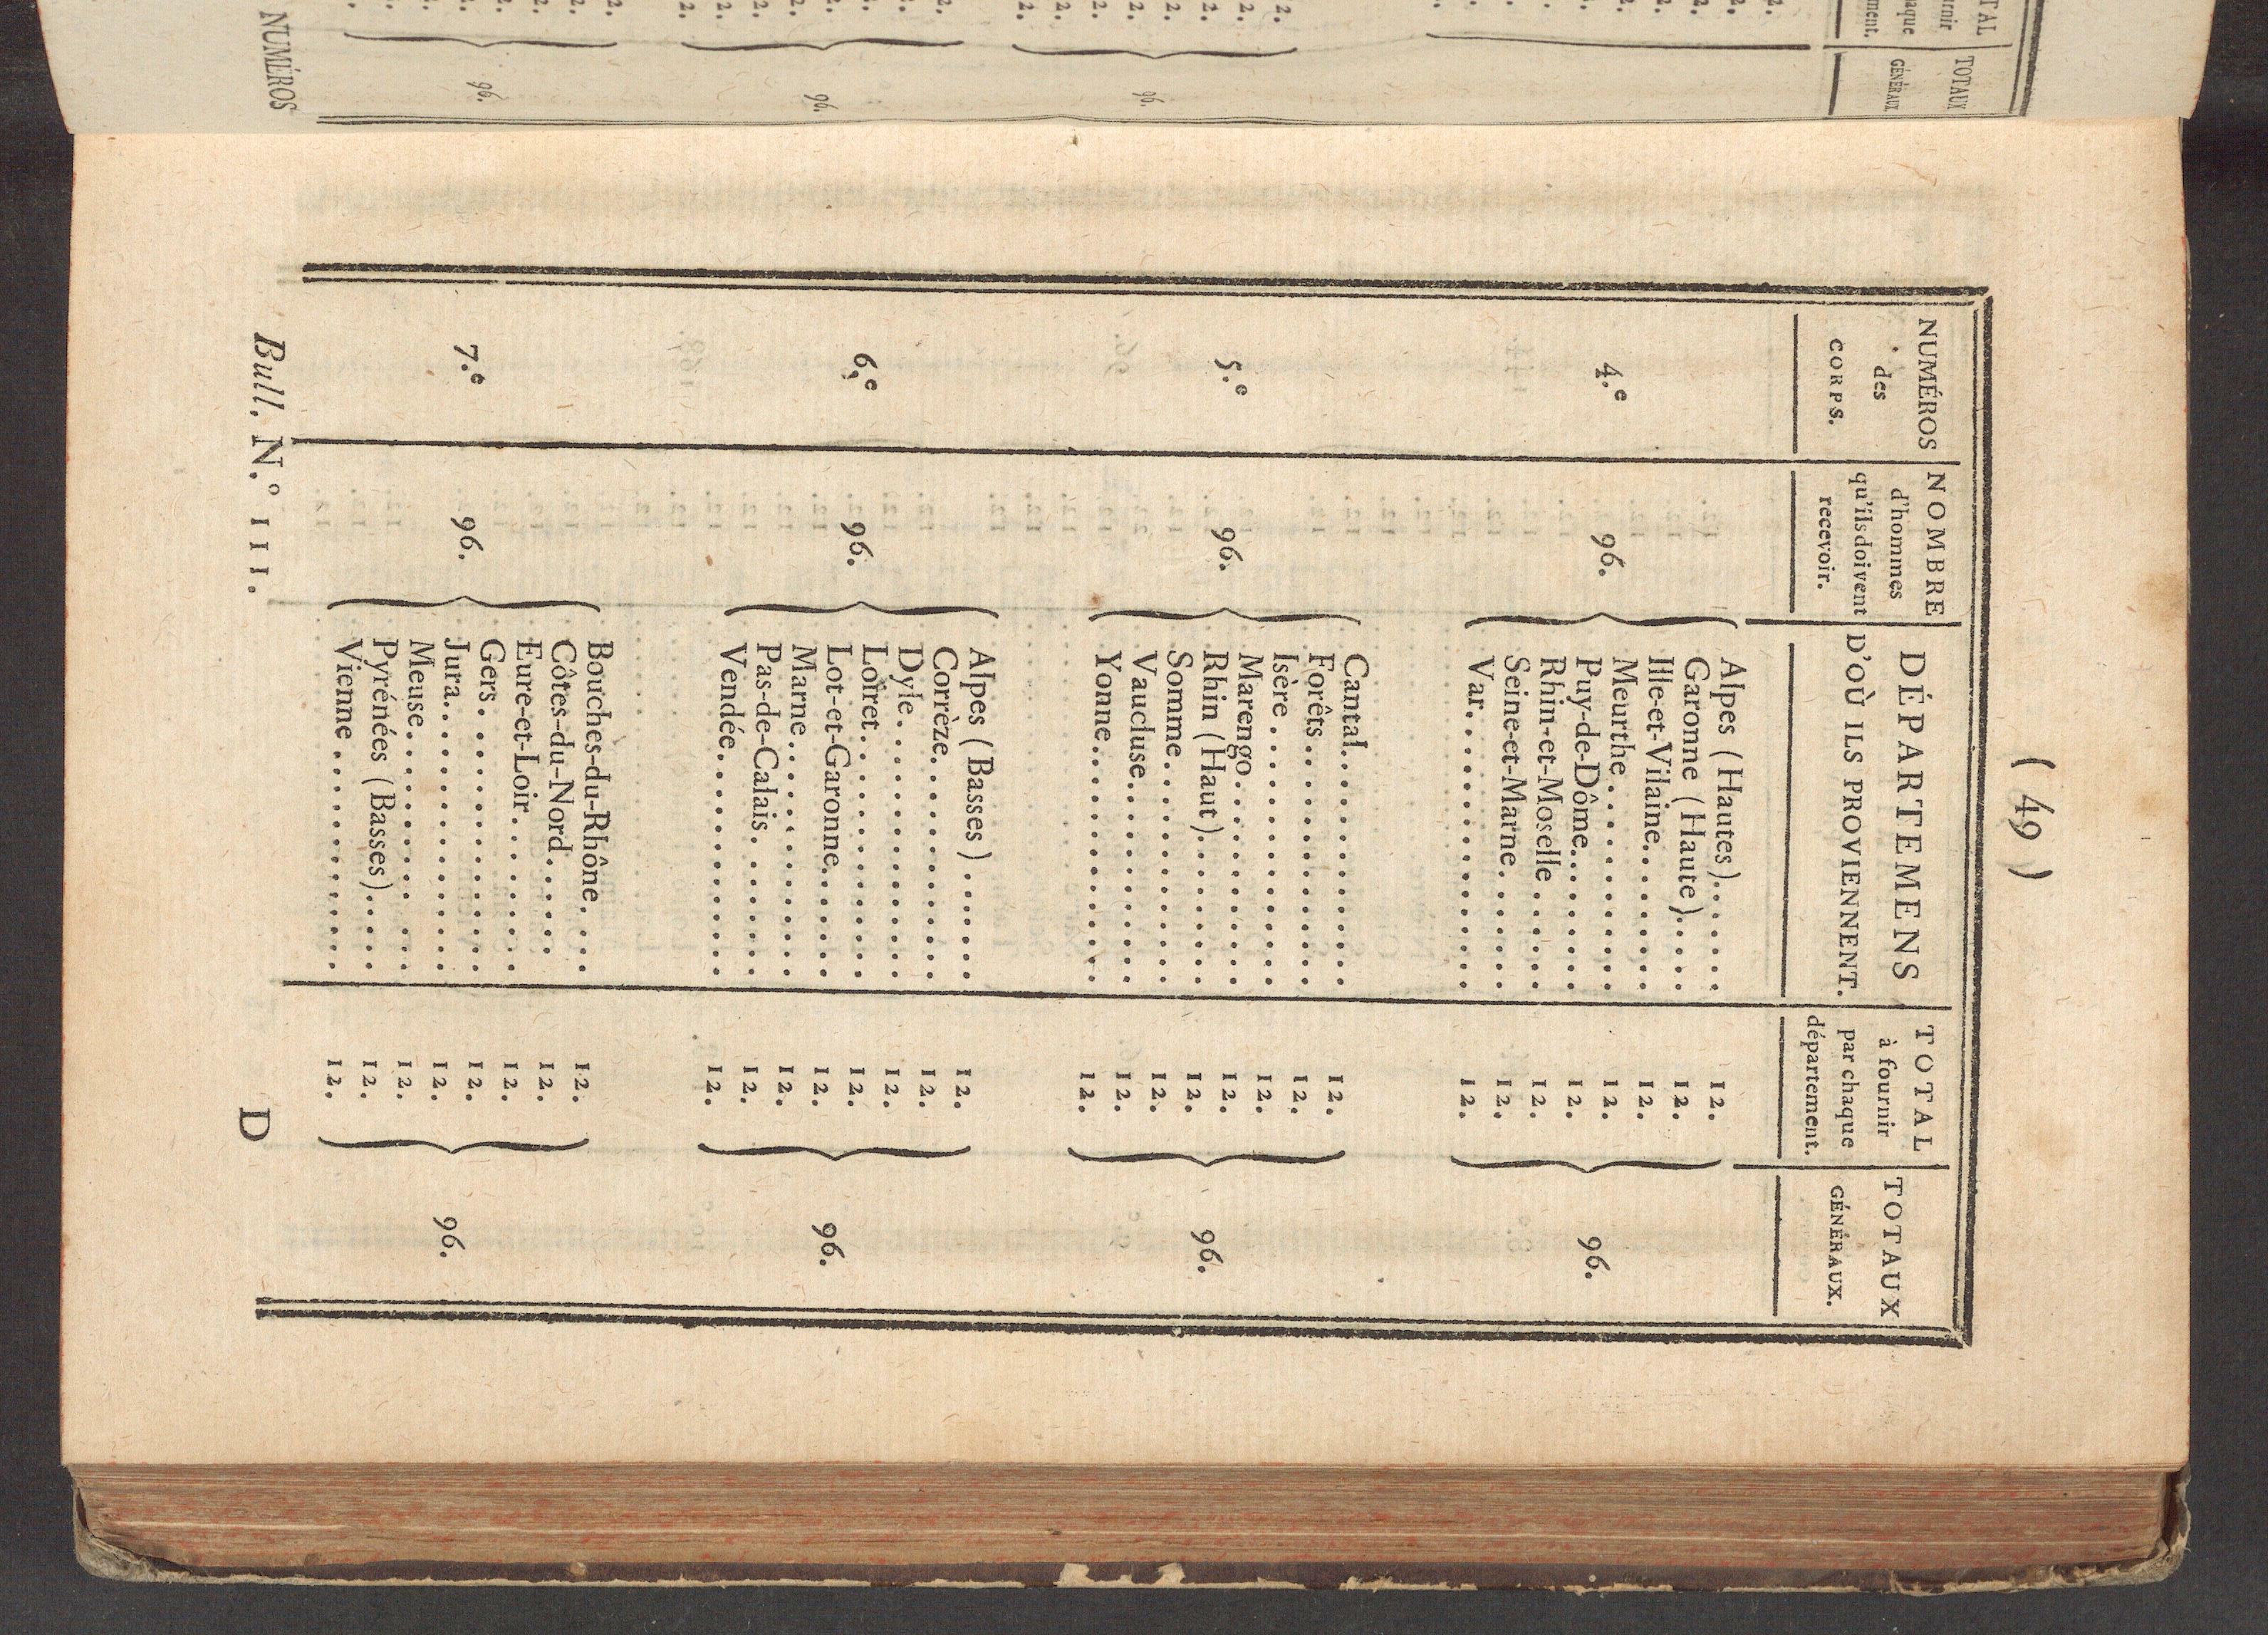 ( 49 )
NUMÉROS des CORPS. | NOMBRE d'hommes qu'ils doivent recevoir. | DÉPARTEMENS D'OÙ ILS PROVIENNENT. | TOTAL à fournir par chaque département. | TOTAUX GÉNÉRAUX.
4.e 96. 96.
Alpes (Hautes)...... 12.
Garonne (Haute)..... 12.
Ille-et-Vilaine........ 12.
Meurthe.......... 12.
Puy-de-Dôme........ 12.
Rhin-et-Moselle...... 12.
Seine-et-Marne....... 12.
Var.............. 12.
5.e 96. 96.
Cantal............ 12.
Forêts............ 12.
Isère............. 12.
Marengo........... 12.
Rhin (Haut)........ 12.
Somme........... 12.
Vaucluse........... 12.
Yonne............ 12.
6.e 96. 96.
Alpes (Basses)...... 12.
Corrèze............ 12.
Dyle............. 12.
Loiret............ 12.
Lot-et-Garonne....... 12.
Marne............ 12.
Pas-de-Calais........ 12.
Vendée............ 12.
7.e 96. 96.
Bouches-du-Rhône.... 12.
Côtes-du-Nord...... 12.
Eure-et-Loir......... 12.
Gers............. 12.
Jura.............. 12.
Meuse........... 12.
Pyrénées (Basses)..... 12.
Vienne............ 12.
Bull. N.° 111. D
TOTAUX
GÉNÉRAUX
96.
96.
96.
NUMÉROS